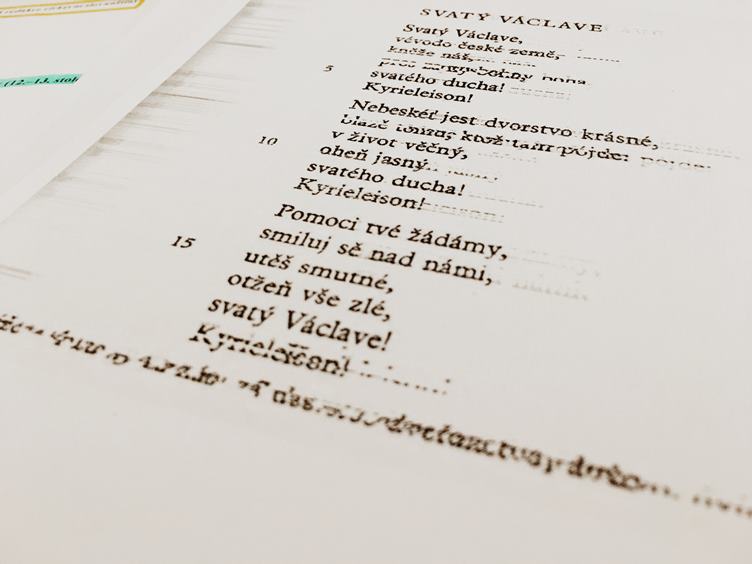 (12.–13. stol
SVATÝ VÁCLAVE
Svatý Václave,
vévodo české země,
kněže náš,
5
svatého ducha!
Kyrieleison!
Nebeskéť jest dvorstvo krásné,
blazě tomu, ktož tam pójde:
10 v život věčný,
oheň jasný
svatého ducha!
Kyrieleison!
Pomoci tvé žádámy,
15 smiluj sě nad námi,
utěš smutné,
otžeň vše zlé,
svatý Václave!
Kyrieleison!